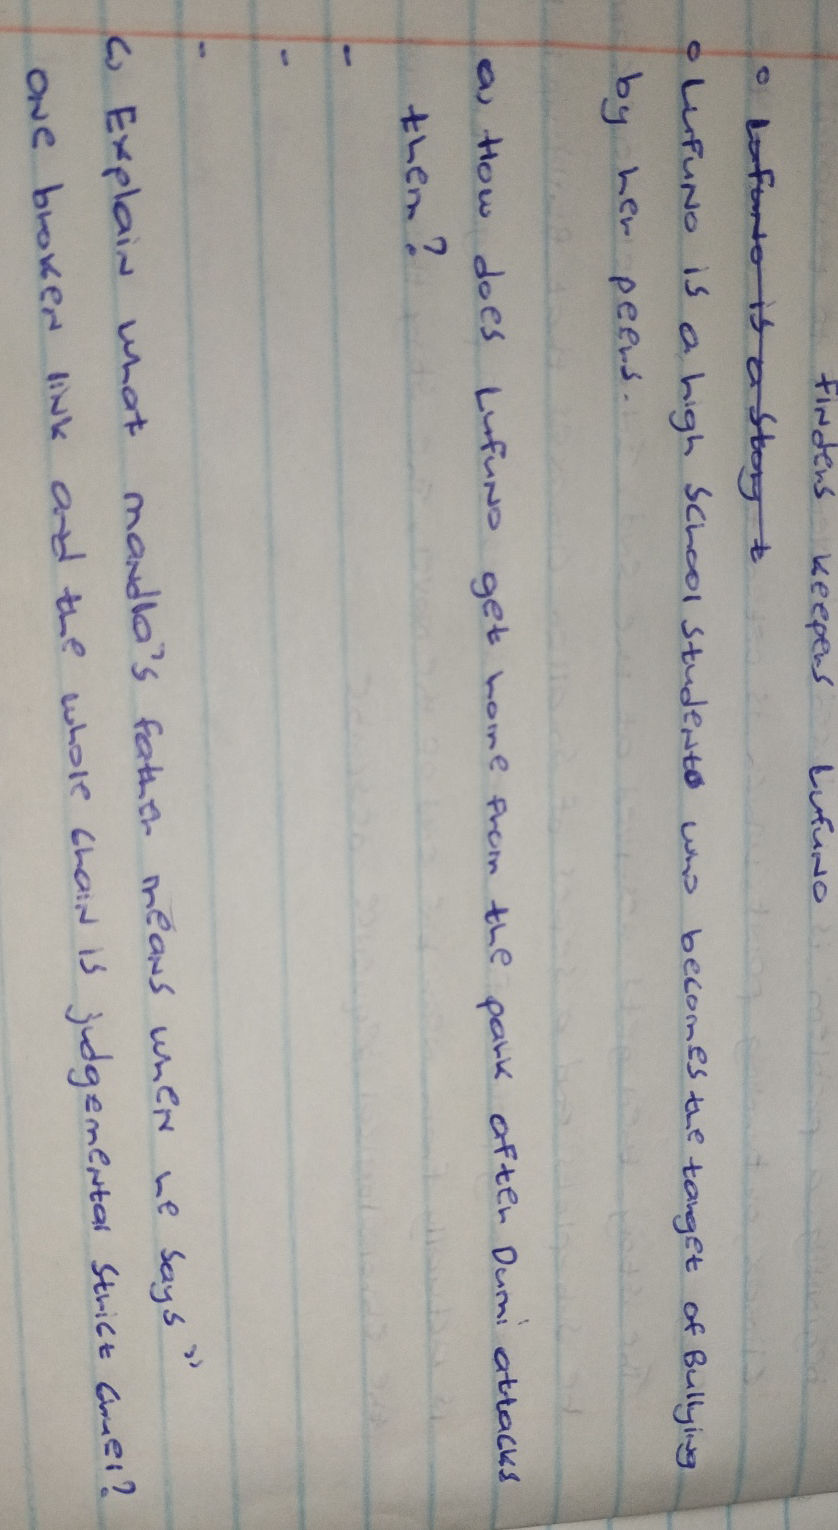 finders keepers Lufuno
° Lufuno is a story t
° Lufuno is a high school students who becomes the target of Bullying
by her peers.
a, How does Lufuno get home from the park after Dumi attacks
them?
-
-
-
C, Explain what mandla's father means when he says "
one broken link and the whole chain is judgemental strict cruel?